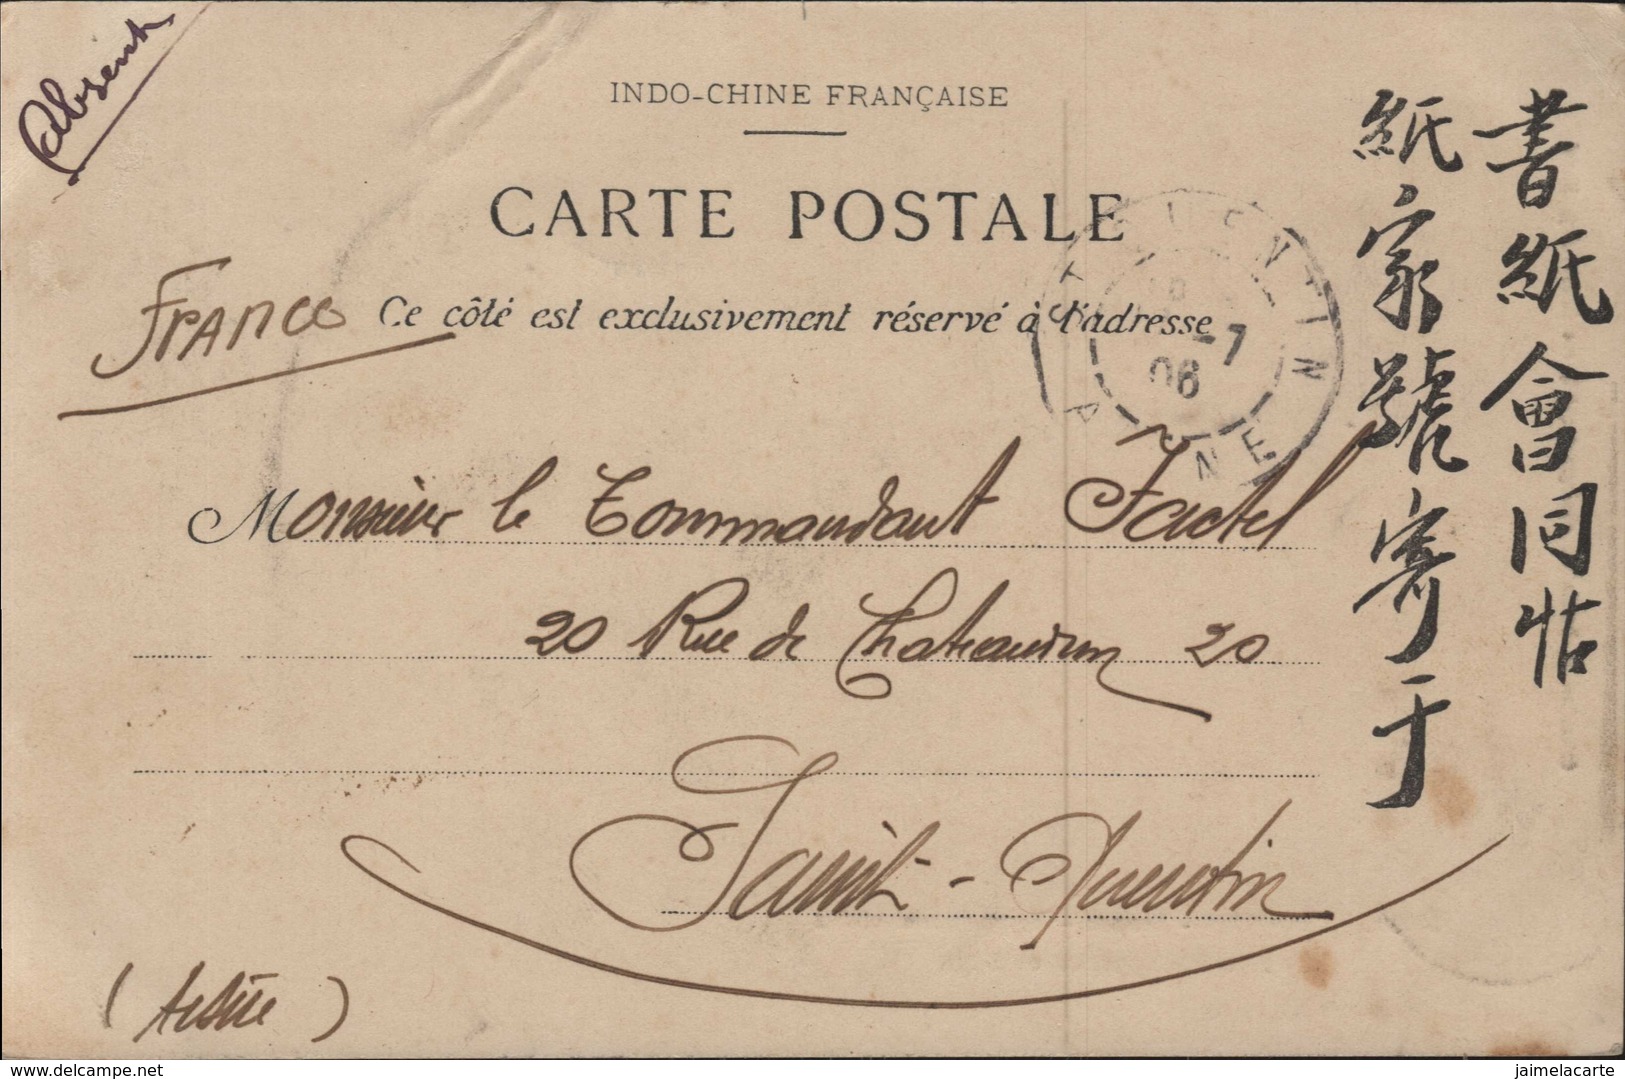 Absent
INDO-CHINE FRANÇAISE
CARTE POSTALE
FRANCE
Ce côté est exclusivement réservé à l'adresse
ST QUENTIN
-7
06
AISNE
Monsieur le Commandant
20 Rue de Chateaudun 20
Saint-Quentin
(Aisne)
書紙會同帖
紙家號寄于
delcampe.net
jaimelacarte